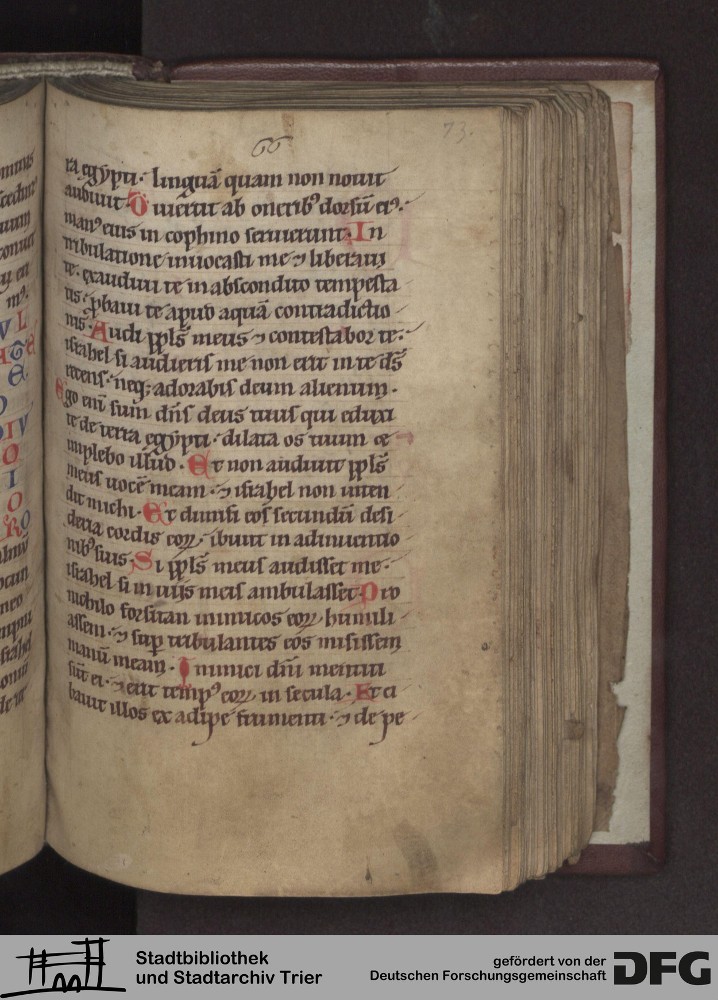 66
73.
ra egypti· linguā quam non nouit
audiuit Diuertit ab onerib⁹ dorsū ei⁹·
man⁹ eius in cophino seruierunt· In
tribulatione inuocasti me ⁊ liberaui
te· exaudiui te in abscondito tempesta
tis· ꝓbaui te apud aquā contradictio
nis· Audi ppls̄ meus ⁊ contestabor te·
israhel si audieris me non erit in te ds̄
recens· neq; adorabis deum alienum·
Ego eni sum dn̄s deus tuus qui eduxi
te de terra egypti· dilata os tuum ⁊
implebo illud· Et non audiuit ppls̄
meus uocē meam· ⁊ israhel non inten
dit michi· Et dimisi eos secundū desi
deria cordis eoꝝ· ibunt in adinuentio
nib⁹ suis· Si ppls̄ meus audisset me·
israhel si in uijs meis ambulasset· Pro
nichilo forsitan inimicos eoꝝ humili
assem· ⁊ sup tribulantes eos misissem
manū meam· Inimici dn̄i mentiti
sūt ei· ⁊ erit temp⁹ eoꝝ in secula· Et ci
bauit illos ex adipe frumenti· ⁊ de pe
Stadtbibliothek
und Stadtarchiv Trier
gefördert von der
Deutschen Forschungsgemeinschaft
DFG